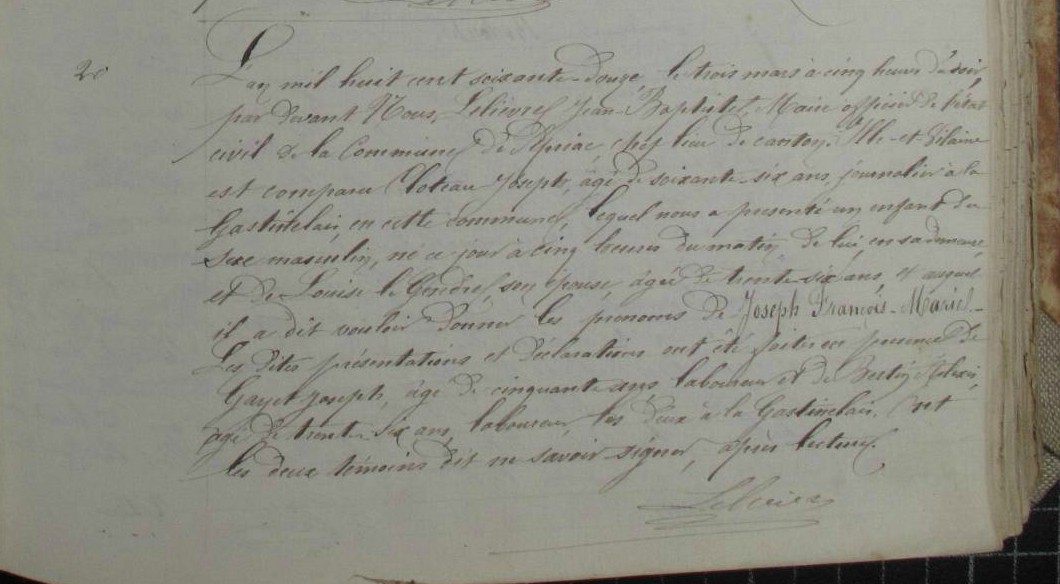 20
L'an mil huit cent soixante-douze le trois mars à cinq heures du soir,
par devant Nous, Lelièvre Jean-Baptiste, Maire officier de l'état
civil de la Commune de Pipriac, chef lieu de canton, Ille-et-Vilaine
est comparu Joseph, âgé de soixante-six ans, journalier à la
Gastinelais, en cette commune, lequel nous a présenté un enfant du
sexe masculin, né ce jour à cinq heures du matin de lui, en sa demeure,
et de Louise le Gendre, son épouse, âgée de trente-six ans, et auquel
il a dit vouloir donner les prénoms de Joseph François-Marie.-
Les dites présentations et déclarations ont été faites en présence de
Gayet Joseph, âgé de cinquante ans, laboureur et de Alexis,
âgé de trente six ans, laboureur, les deux à la Gastinelais. Ont
les deux témoins dit ne savoir signer, après lecture.
Lelièvre